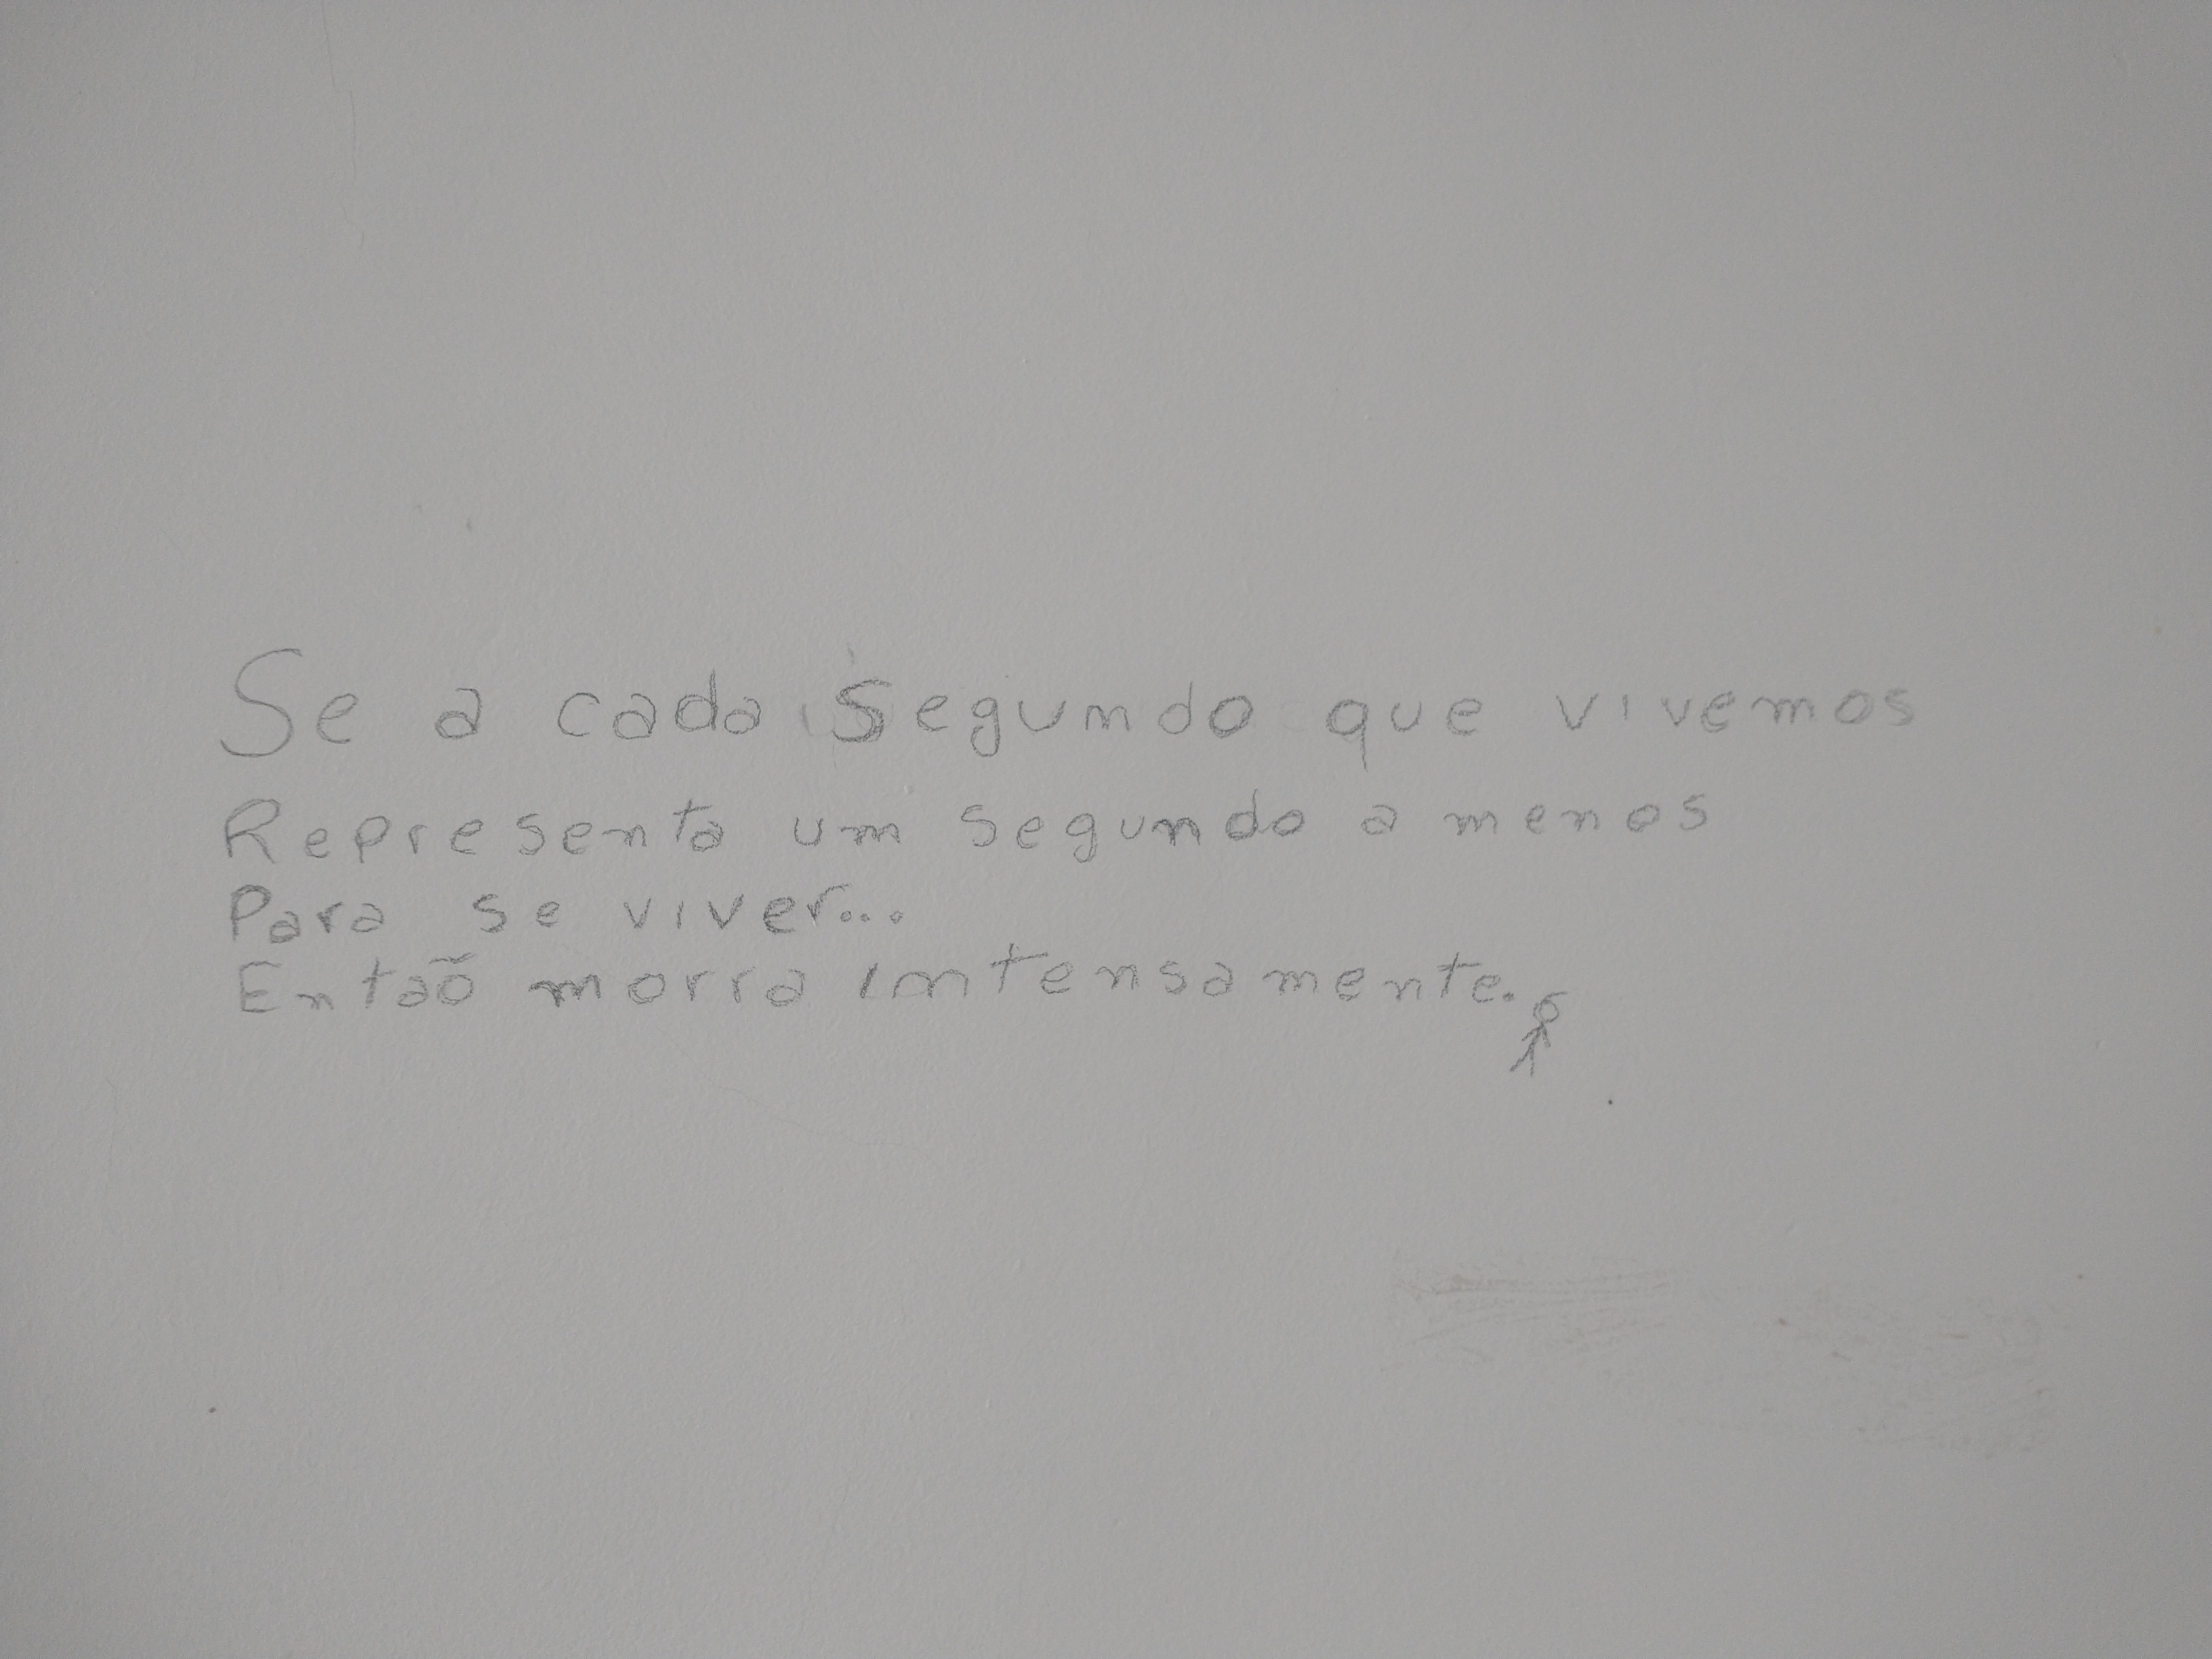 Se a cada segundo que vivemos
Representa um segundo a menos
Para se viver...
Então morra intensamente.